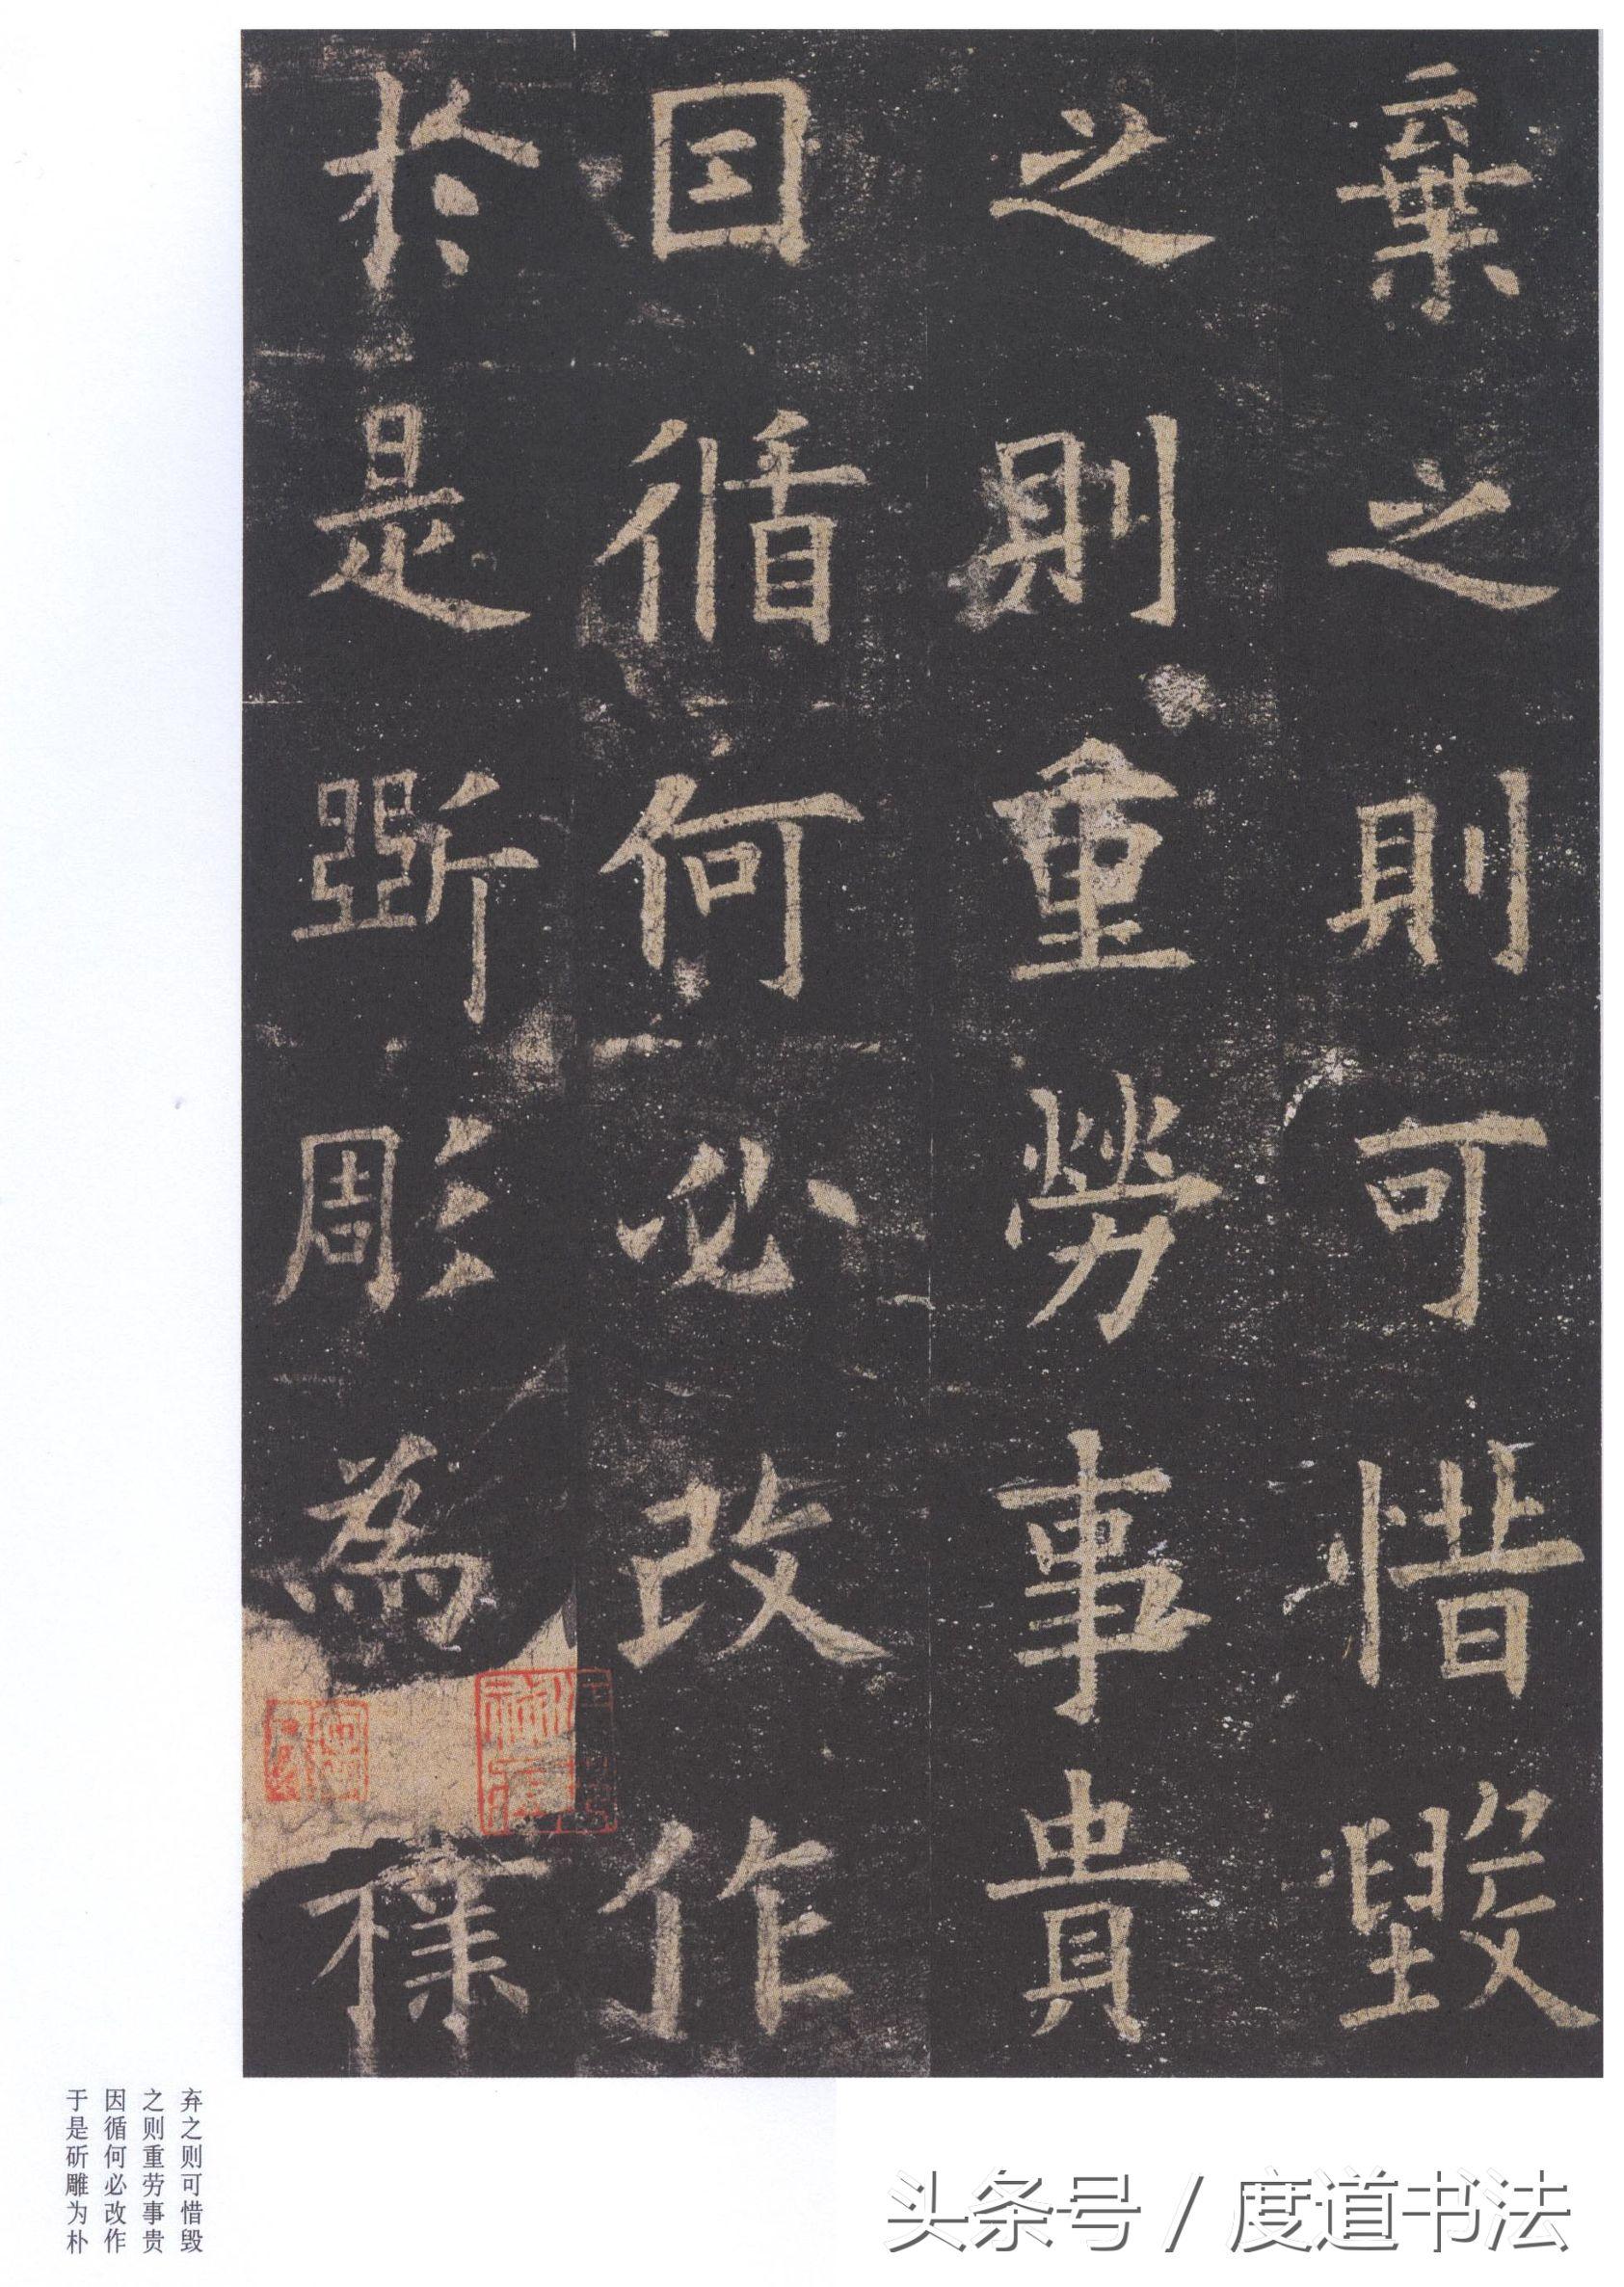 棄之則可惜毀
之則重勞事貴
因循何必改作
於是斲彫為樸
弃之则可惜毁
之则重劳事贵
因循何必改作
于是斫雕为朴
头条号 / 度道书法